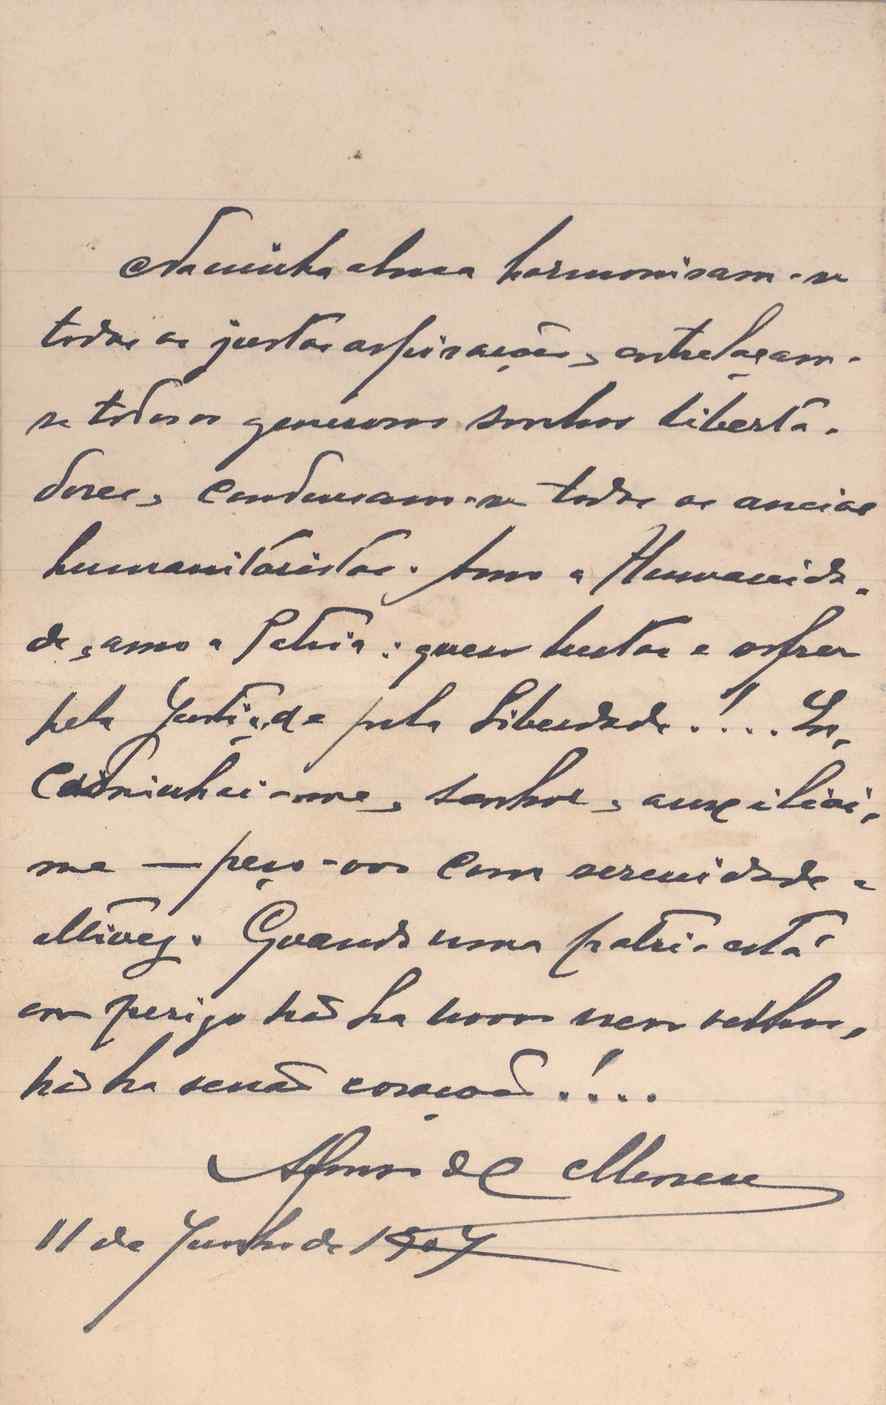 Na minha alma harmonisam-se
todas as justas aspirações, entrelaçam-
se todos os generosos sonhos liberta-
dores, condensam-se todas as ancias
humanitaristas. Amo a Humanida-
de, amo a Patria: quero luctar e soffrer
pela Justiça, e pela Liberdade!... En-
caminhai-me, senhor, auxiliai-
me — peço-vos com serenidade e
altivez. Quando uma patria está
em perigo não ha novos nem velhos,
não ha senão coração!...
Afonso de
11 de Junho de 1907